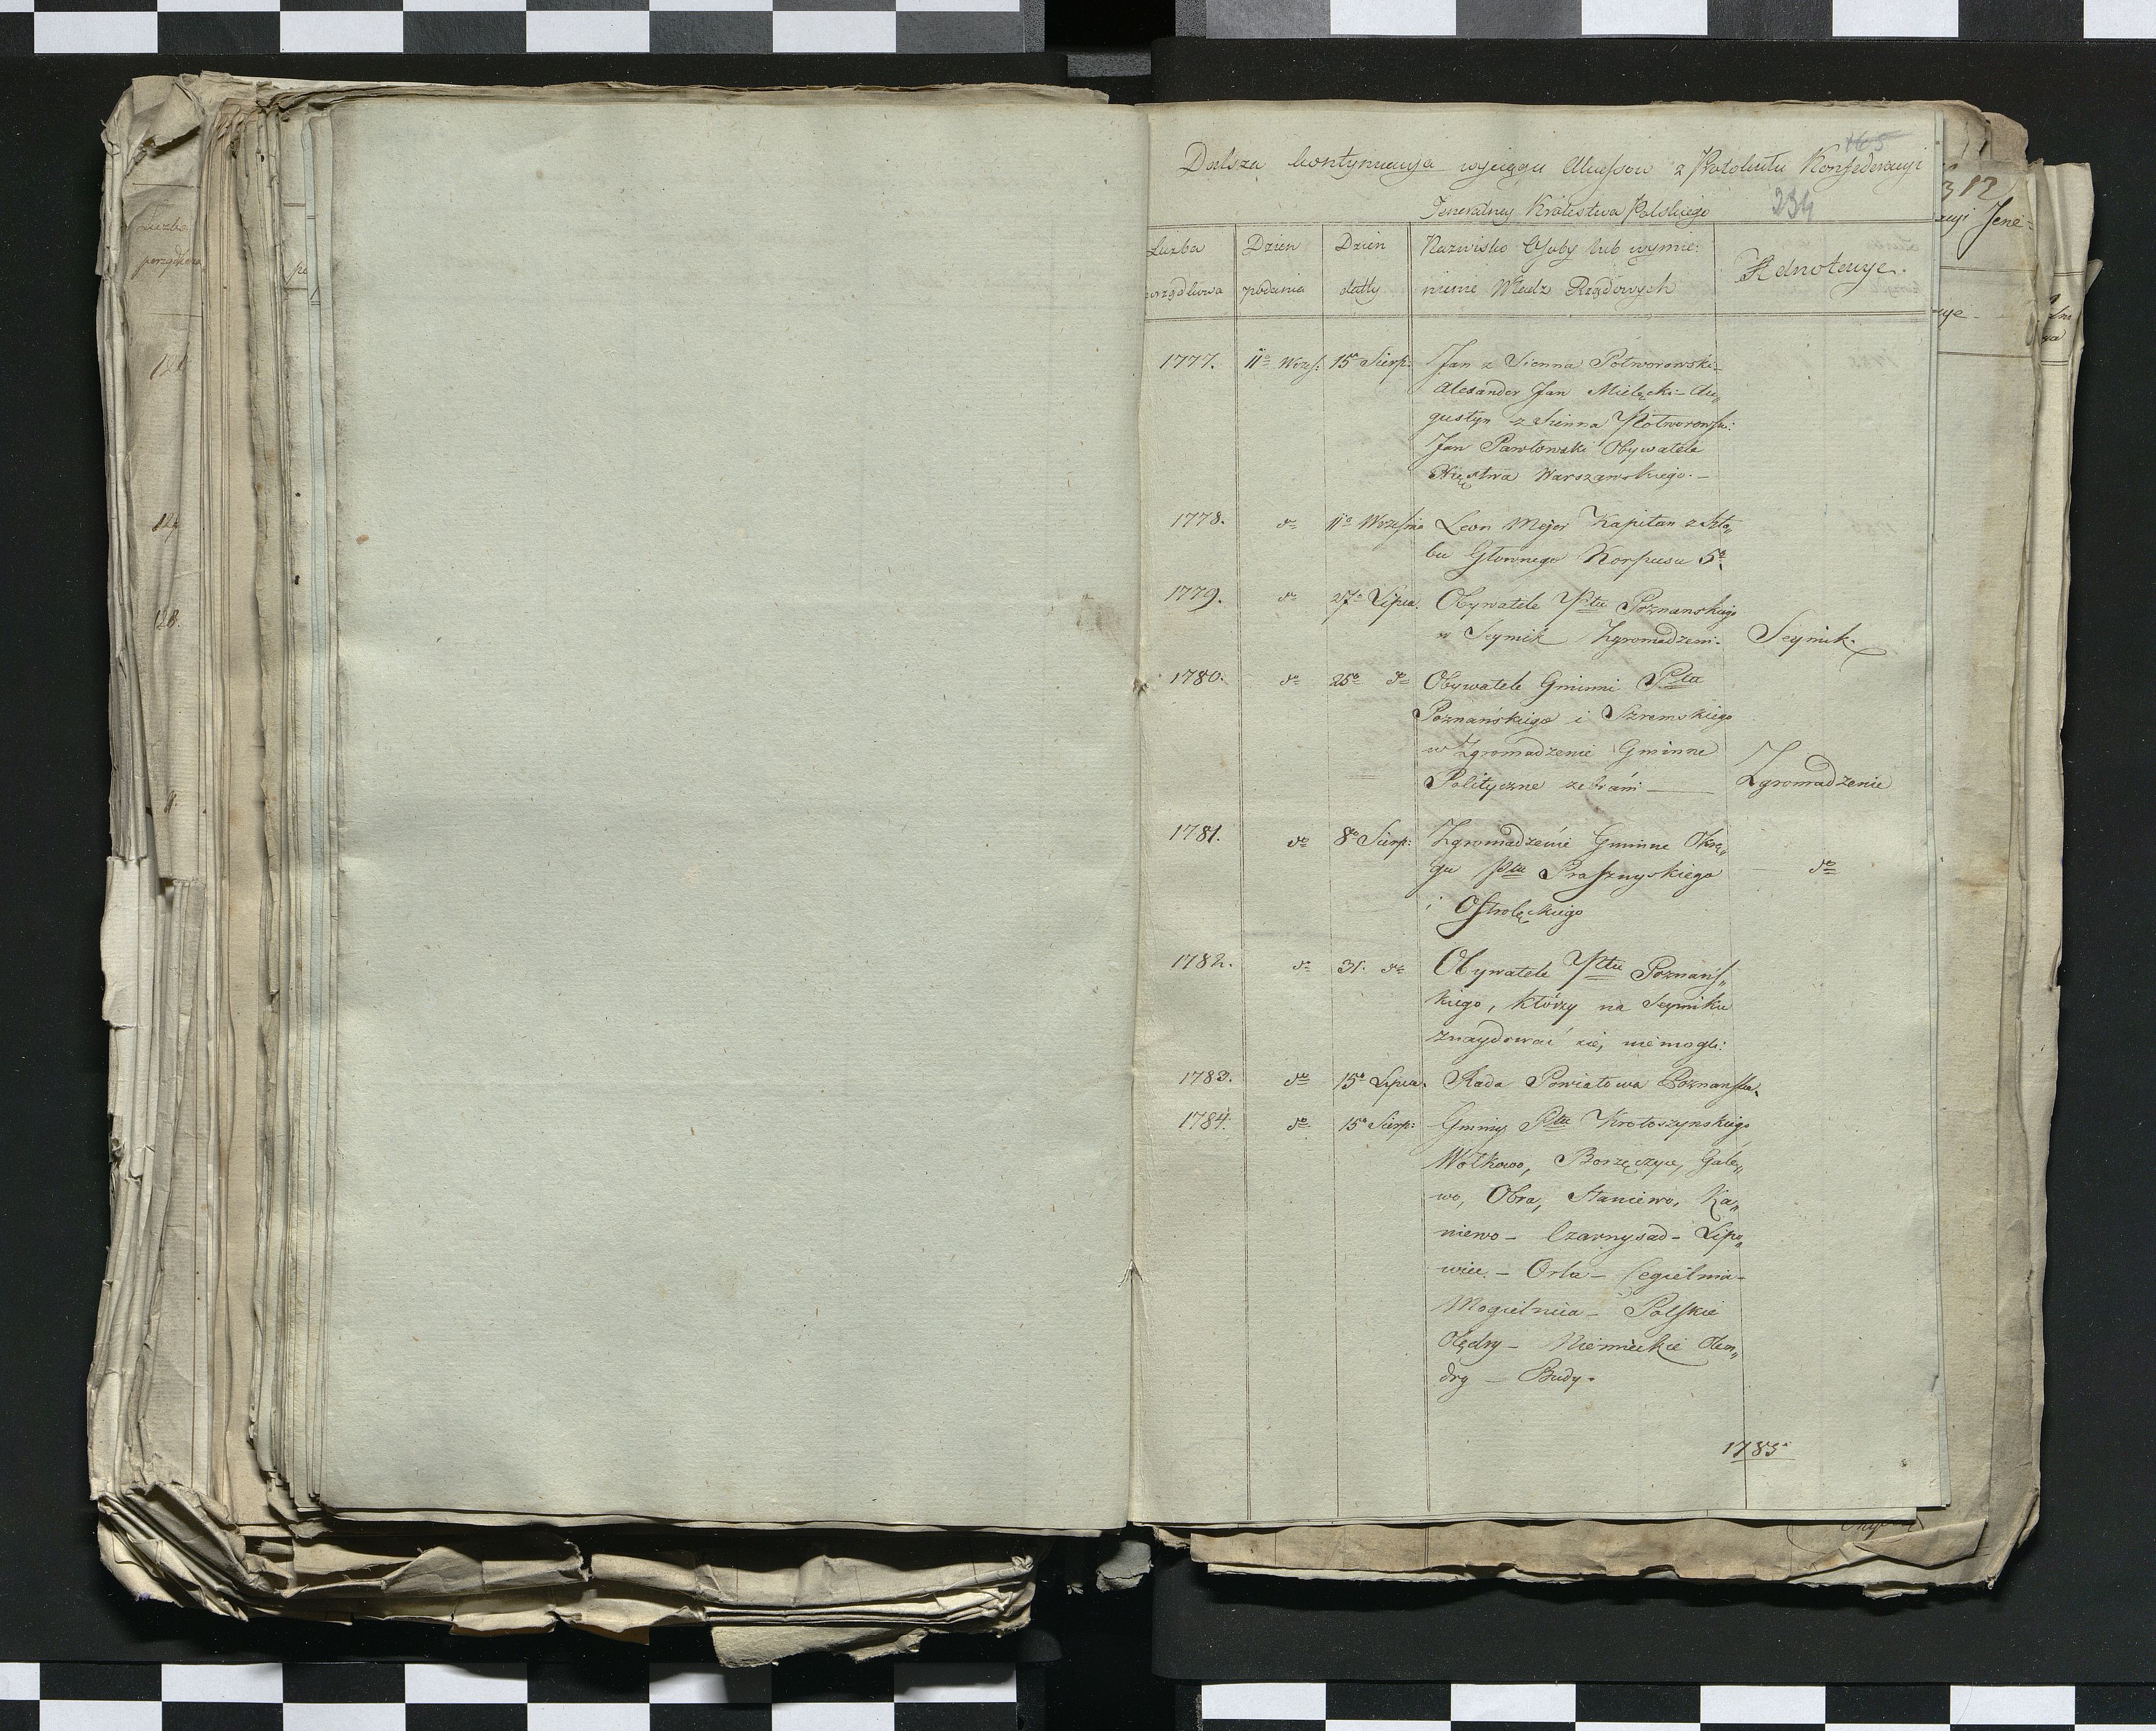 165
Dalsza kontynuacya wyciągu Akcessow z Protokułu Konfederacyi
Jeneralney Królestwa Polskiego
234
Liczba Dzień Dzień Nazwisko Osoby lub wymie: Adnotacye.
porządkowa podania datty nienie Władz Rządowych
1777. 11º Wrześ: 15º Sierp: Jan z Sienna Potworowski –
Alexander Jan Mielęcki – Au„
gustyn z Sienna Potworowski:
Jan Pawłowski Obywatele
Xięstwa Warszawskiego. –
1778. dº 11º Września Leon Mejer Kapitan z Szta„
bu Głownego Korpusu 5º.
1779. dº 27º Lipca. Obywatele Pttu Poznanskiego
w Seymik Zgromadzeni. Seymik.
1780. dº 25º dº Obywatele Gminni Pttu
Poznańskiego i Szremskiego
w Zgromadzenie Gminne
Polityczne zebrani — Zgromadzenie
1781. dº 8º Sierp: Zgromadzenie Gminne Okrę„
gu Pttu Prasznyskiego — dº
i Ostrolęckiego
1782. dº 31. dº Obywatele Pttu Poznańs„
kiego, którzy na Seymiku
znaydować się, niemogli.
1783. dº 15º Lipca. Rada Powiatowa Poznanska.
1784. dº 15º Sierp: Gminy Pttu Krotoszynskiego
Wolkowo, Borzęczyce, Gałe„
wo, Obra, Staniewo, Ka„
niewo – Czarnysad – Lipo„
wiec – Orla – Cegielnia –
Mogielnica – Polskie
Olędry – Niemieckie Olen„
dry – Budy.
1785.
Liczba
porządkowa
128.
312
Jene-